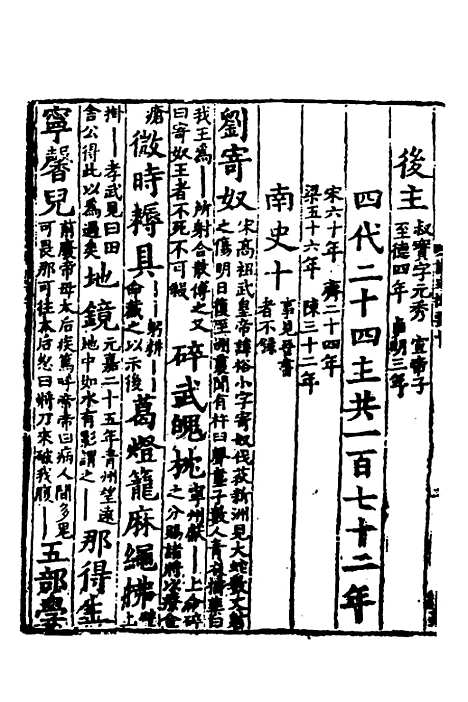 後主叔寶字元秀 宣帝子
至德四年 禎明三年
四代二十四主共一百七十二年
宋六十年 齊二十四年
梁五十六年 陳三十二年
南史十事見晉書者不錄
劉寄奴宋高祖武皇帝諱裕小字寄奴伐荻新洲見大蛇數丈射
之傷明日復至洲裏聞有杵臼聲童子數人青衣擣藥曰
我王為——所射合散傅之又
曰寄奴王者不死不可殺
碎武魄枕寧州獻——上命碎
之分賜諸將以療金
瘡微時耨具——躬耕——
命藏之以示後
葛燈籠麻繩拂
上
掛——孝武見曰田
舍公得此以為過矣
地鏡元嘉二十五年青州望遠
地中如水有影謂之——
那得生
寧馨兒前廢帝母太后疾篤呼帝帝曰病人間多鬼
可畏那可往太后怒曰將刀來破我腹——
五部學